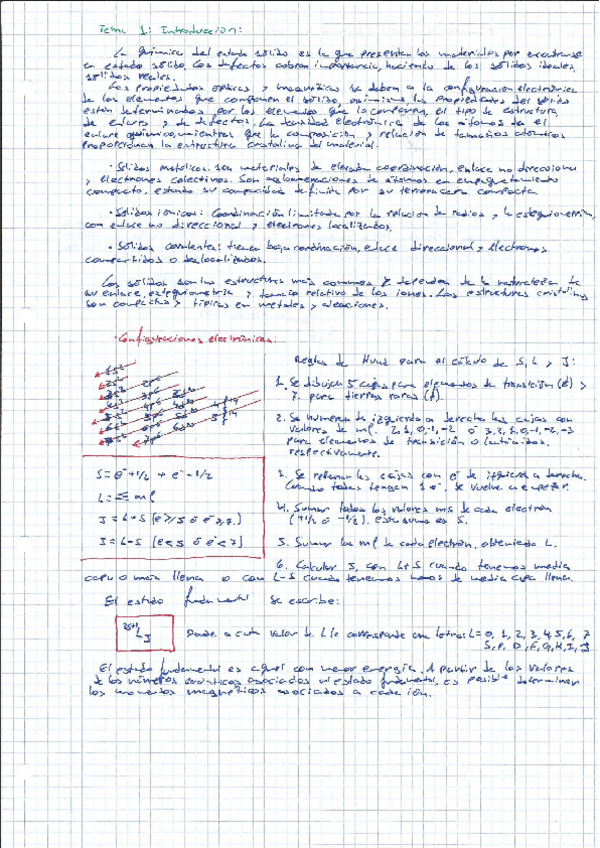 Tema 1: Introducción:
La Química del estado sólido es la que presentan los materiales por encontrarse
en estado sólido. Los defectos cobran importancia, haciendo de los sólidos ideales
sólidos reales.
Las propiedades ópticas y magnéticas se deben a la configuración electrónica
de los elementos que componen el sólido, asimismo, las propiedades del sólido
están determinados por los elementos que lo componen, el tipo de estructura,
de enlaces y de defectos. La densidad electrónica de los átomos da el
enlace químico, mientras que la composición y relación de tamaños atómicos
proporcionan la estructura cristalina del material.
· Sólidos metálicos: son materiales de elevada coordinación, enlace no direccional
y electrones colectivos. Son aglomeraciones de átomos en empaquetamiento
compacto, estando su compacidad definida por su terracapa compacta
· Sólidos iónicos: Coordinación limitada por la relación de radios y la estequiometría,
con enlace no direccional y electrones localizados.
· Sólidos covalentes: tienen baja coordinación, enlace direccional y electrones
compartidos o deslocalizados.
Los sólidos son las estructuras más comunes y dependen de la naturaleza de
su enlace, estequiometría y tamaño relativo de los iones. Las estructuras cristalinas
son compactas y típicas en metales y aleaciones.
· Configuraciones electrónicas:
Reglas de Hund para el cálculo de S, L y J:
1. Se dibujan 5 cajas para elementos de transición (d) y
7 para tierras raras (f).
2. Se numeran de izquierda a derecha las cajas con
valores de ml. 2, 1, 0, -1, -2 ó 3, 2, 1, 0, -1, -2, -3
para elementos de transición o lantánidos,
respectivamente.
3. Se rellenan las cajas con e⁻ de izquierda a derecha.
Cuando todas tengan 1 e⁻, se vuelve a empezar.
4. Sumar todos los valores ms de cada electrón
(+1/2 ó -1/2). esta suma es S.
5. Sumar los ml de cada electrón, obteniendo L.
6. Calcular J, con L+S cuando tenemos media
capa o más llena o con L-S cuando tenemos menos de media capa llena.
S = e⁻·+1/2 + e⁻·-1/2
L = Σ ml
J = L+S (e⁻≥5 ó e⁻≥7)
J = L-S (e⁻<5 ó e⁻<7)
El estado fundamental se escribe:
²ˢ⁺¹L_J
Donde a cada valor de L le corresponde una letra: L= 0, 1, 2, 3, 4, 5, 6, 7
S, P, D, F, G, H, I, J
El estado fundamental es aquel con menor energía. A partir de los valores
de los números cuánticos asociados al estado fundamental, es posible determinar
los momentos magnéticos asociados a cada ión.